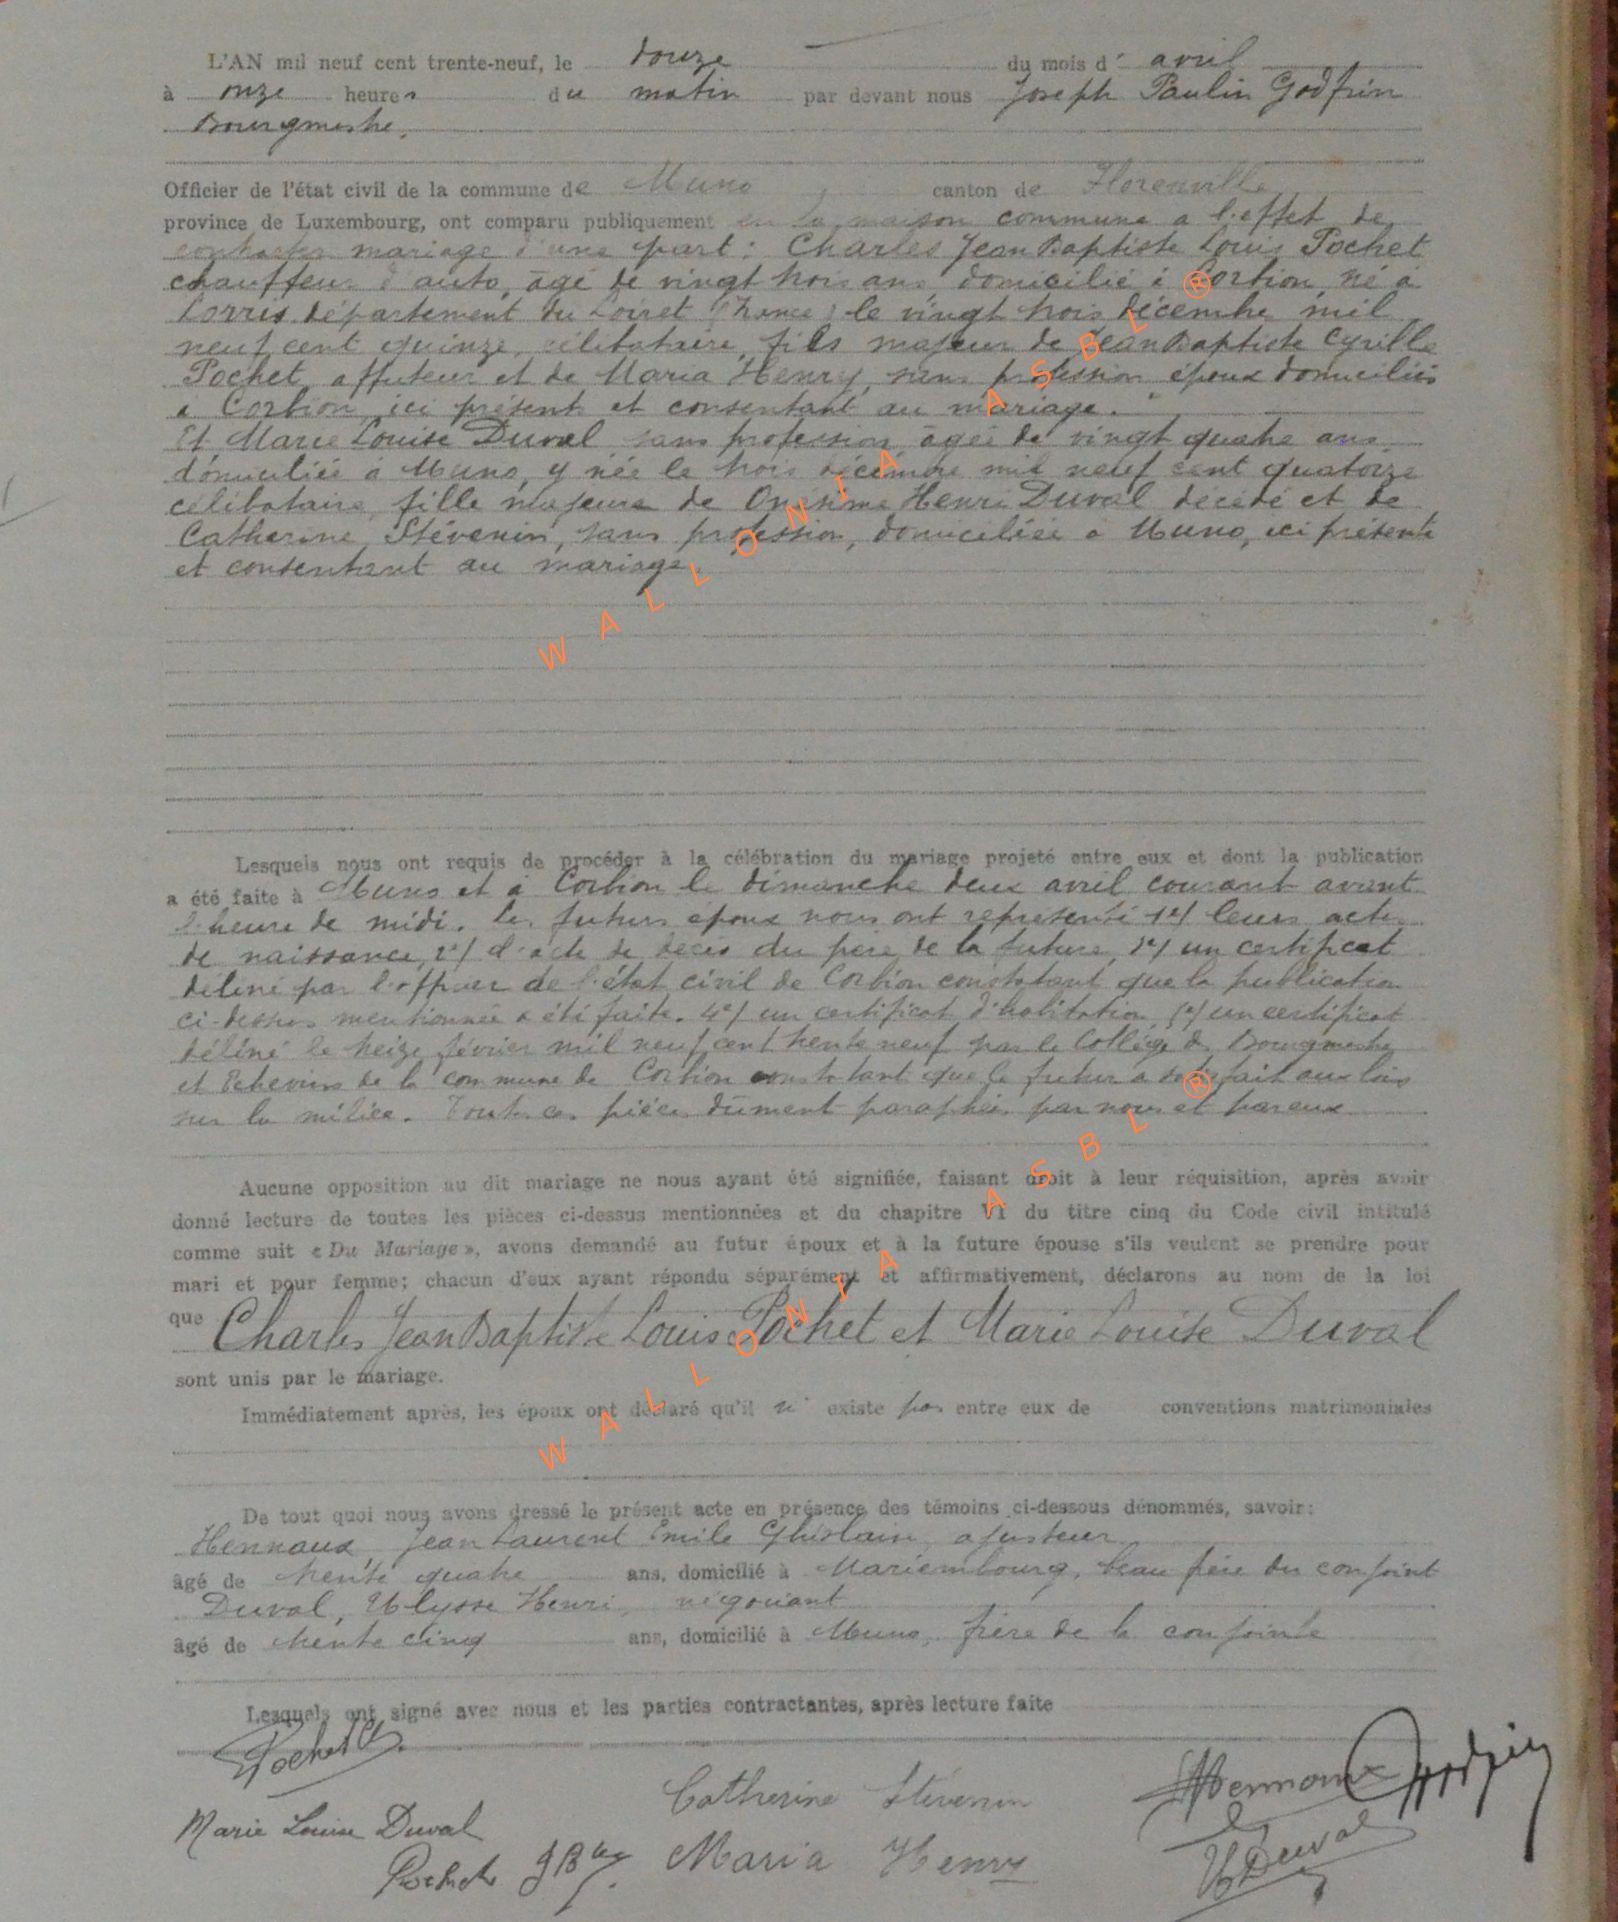 L'AN mil neuf cent trente-neuf, le douze du mois d' avril
à onze heures du matin par devant nous Joseph Paulin Godfrin
Bourgmestre,
Officier de l'état civil de la commune de Muno, canton de Florenville
province de Luxembourg, ont comparu publiquement en la maison commune a l'effet de
contracter mariage d'une part: Charles Jean Baptiste Louis Pochet
chauffeur d'auto, âgé de vingt trois ans, domicilié à Corbion, né à
Lorris département du Loiret (France) le vingt trois décembre mil
neuf cent quinze, célibataire, fils majeur de Jean Baptiste Cyrille
Pochet, affuteur et de Maria Henry, sans profession époux domiciliés
à Corbion, ici présents et consentant au mariage.
Et Marie Louise Duval sans profession âgée de vingt quatre ans
domiciliée à Muno, y née le trois décembre mil neuf cent quatorze
célibataire, fille majeure de Onésime Henri Duval décédé et de
Catherine Stévenin, sans profession, domiciliée à Muno, ici présente
et consentant au mariage.
Lesquels nous ont requis de procéder à la célébration du mariage projeté entre eux et dont la publication
a été faite à Muno et à Corbion le dimanche deux avril courant avant
l'heure de midi. les futurs époux nous ont représenté 1°/ leurs actes
de naissance, 2°/ l'acte de décès du père de la future, 3°/ un certificat
délivré par l'officier de l'état civil de Corbion constatant que la publication
ci-dessus mentionnée a été faite. 4°/ un certificat d'habitation, 5°/ un certificat
délivré le treize février mil neuf cent trente neuf par le Collège des Bourgmestre
et Echevins de la commune de Corbion constatant que le futur a satisfait aux lois
sur la milice. Toutes ces pièces dûment paraphées par nous et par eux
Aucune opposition au dit mariage ne nous ayant été signifiée, faisant droit à leur réquisition, après avoir
donné lecture de toutes les pièces ci-dessus mentionnées et du chapitre VI du titre cinq du Code civil intitulé
comme suit « Du Mariage », avons demandé au futur époux et à la future épouse s'ils veulent se prendre pour
mari et pour femme; chacun d'eux ayant répondu séparément et affirmativement, déclarons au nom de la loi
que Charles Jean Baptiste Louis Pochet et Marie Louise Duval
sont unis par le mariage.
Immédiatement après, les époux ont déclaré qu'il n' existe pas entre eux de conventions matrimoniales
De tout quoi nous avons dressé le présent acte en présence des témoins ci-dessous dénommés, savoir:
Hennaux, Jean Laurent Emile Ghislain, ajusteur
âgé de trente quatre ans, domicilié à Mariembourg, beau frère du conjoint
Duval, Ulysse Henri, négociant
âgé de trente cinq ans, domicilié à Muno, frère de la conjointe
Lesquels ont signé avec nous et les parties contractantes, après lecture faite
Pochet Ch.
Catherine Stévenin
Hennaux Godfrin
Marie Louise Duval
U Duval
Pochet J Bte
Maria Henry
WALLONIA ASBL ®
WALLONIA ASBL ®